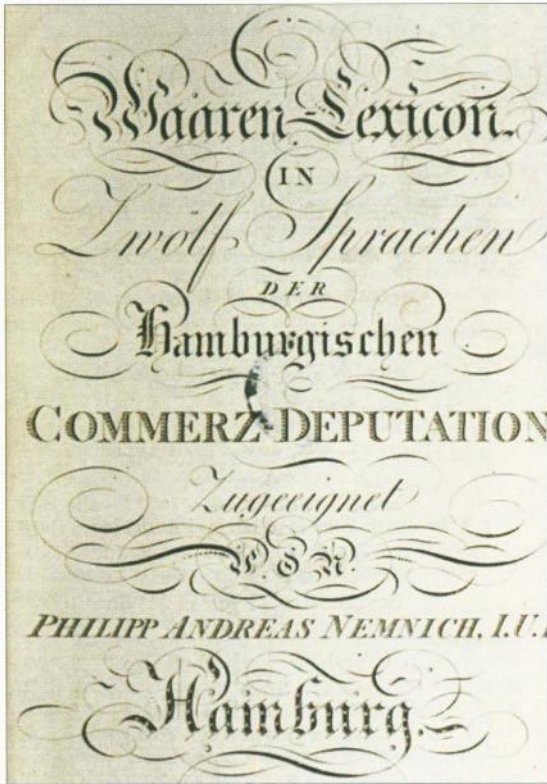 Waaren-Lexicon.
IN
Zwölf Sprachen
DER
Hamburgischen
COMMERZ-DEPUTATION
Zugeeignet
VON
PHILIPP ANDREAS NEMNICH, I.U.
Hamburg.